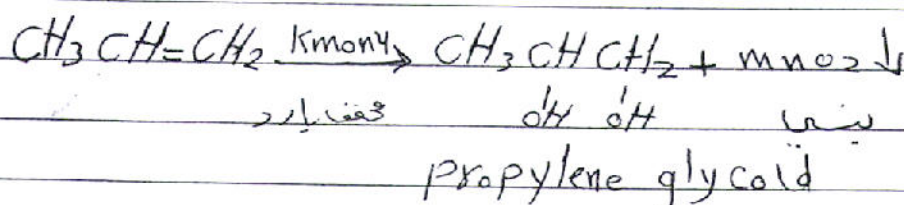 CH3 CH=CH2 Kmon4 → CH3 CH CH2 + mno2 ↓
مخفف بارد OH OH بني
propylene glycold